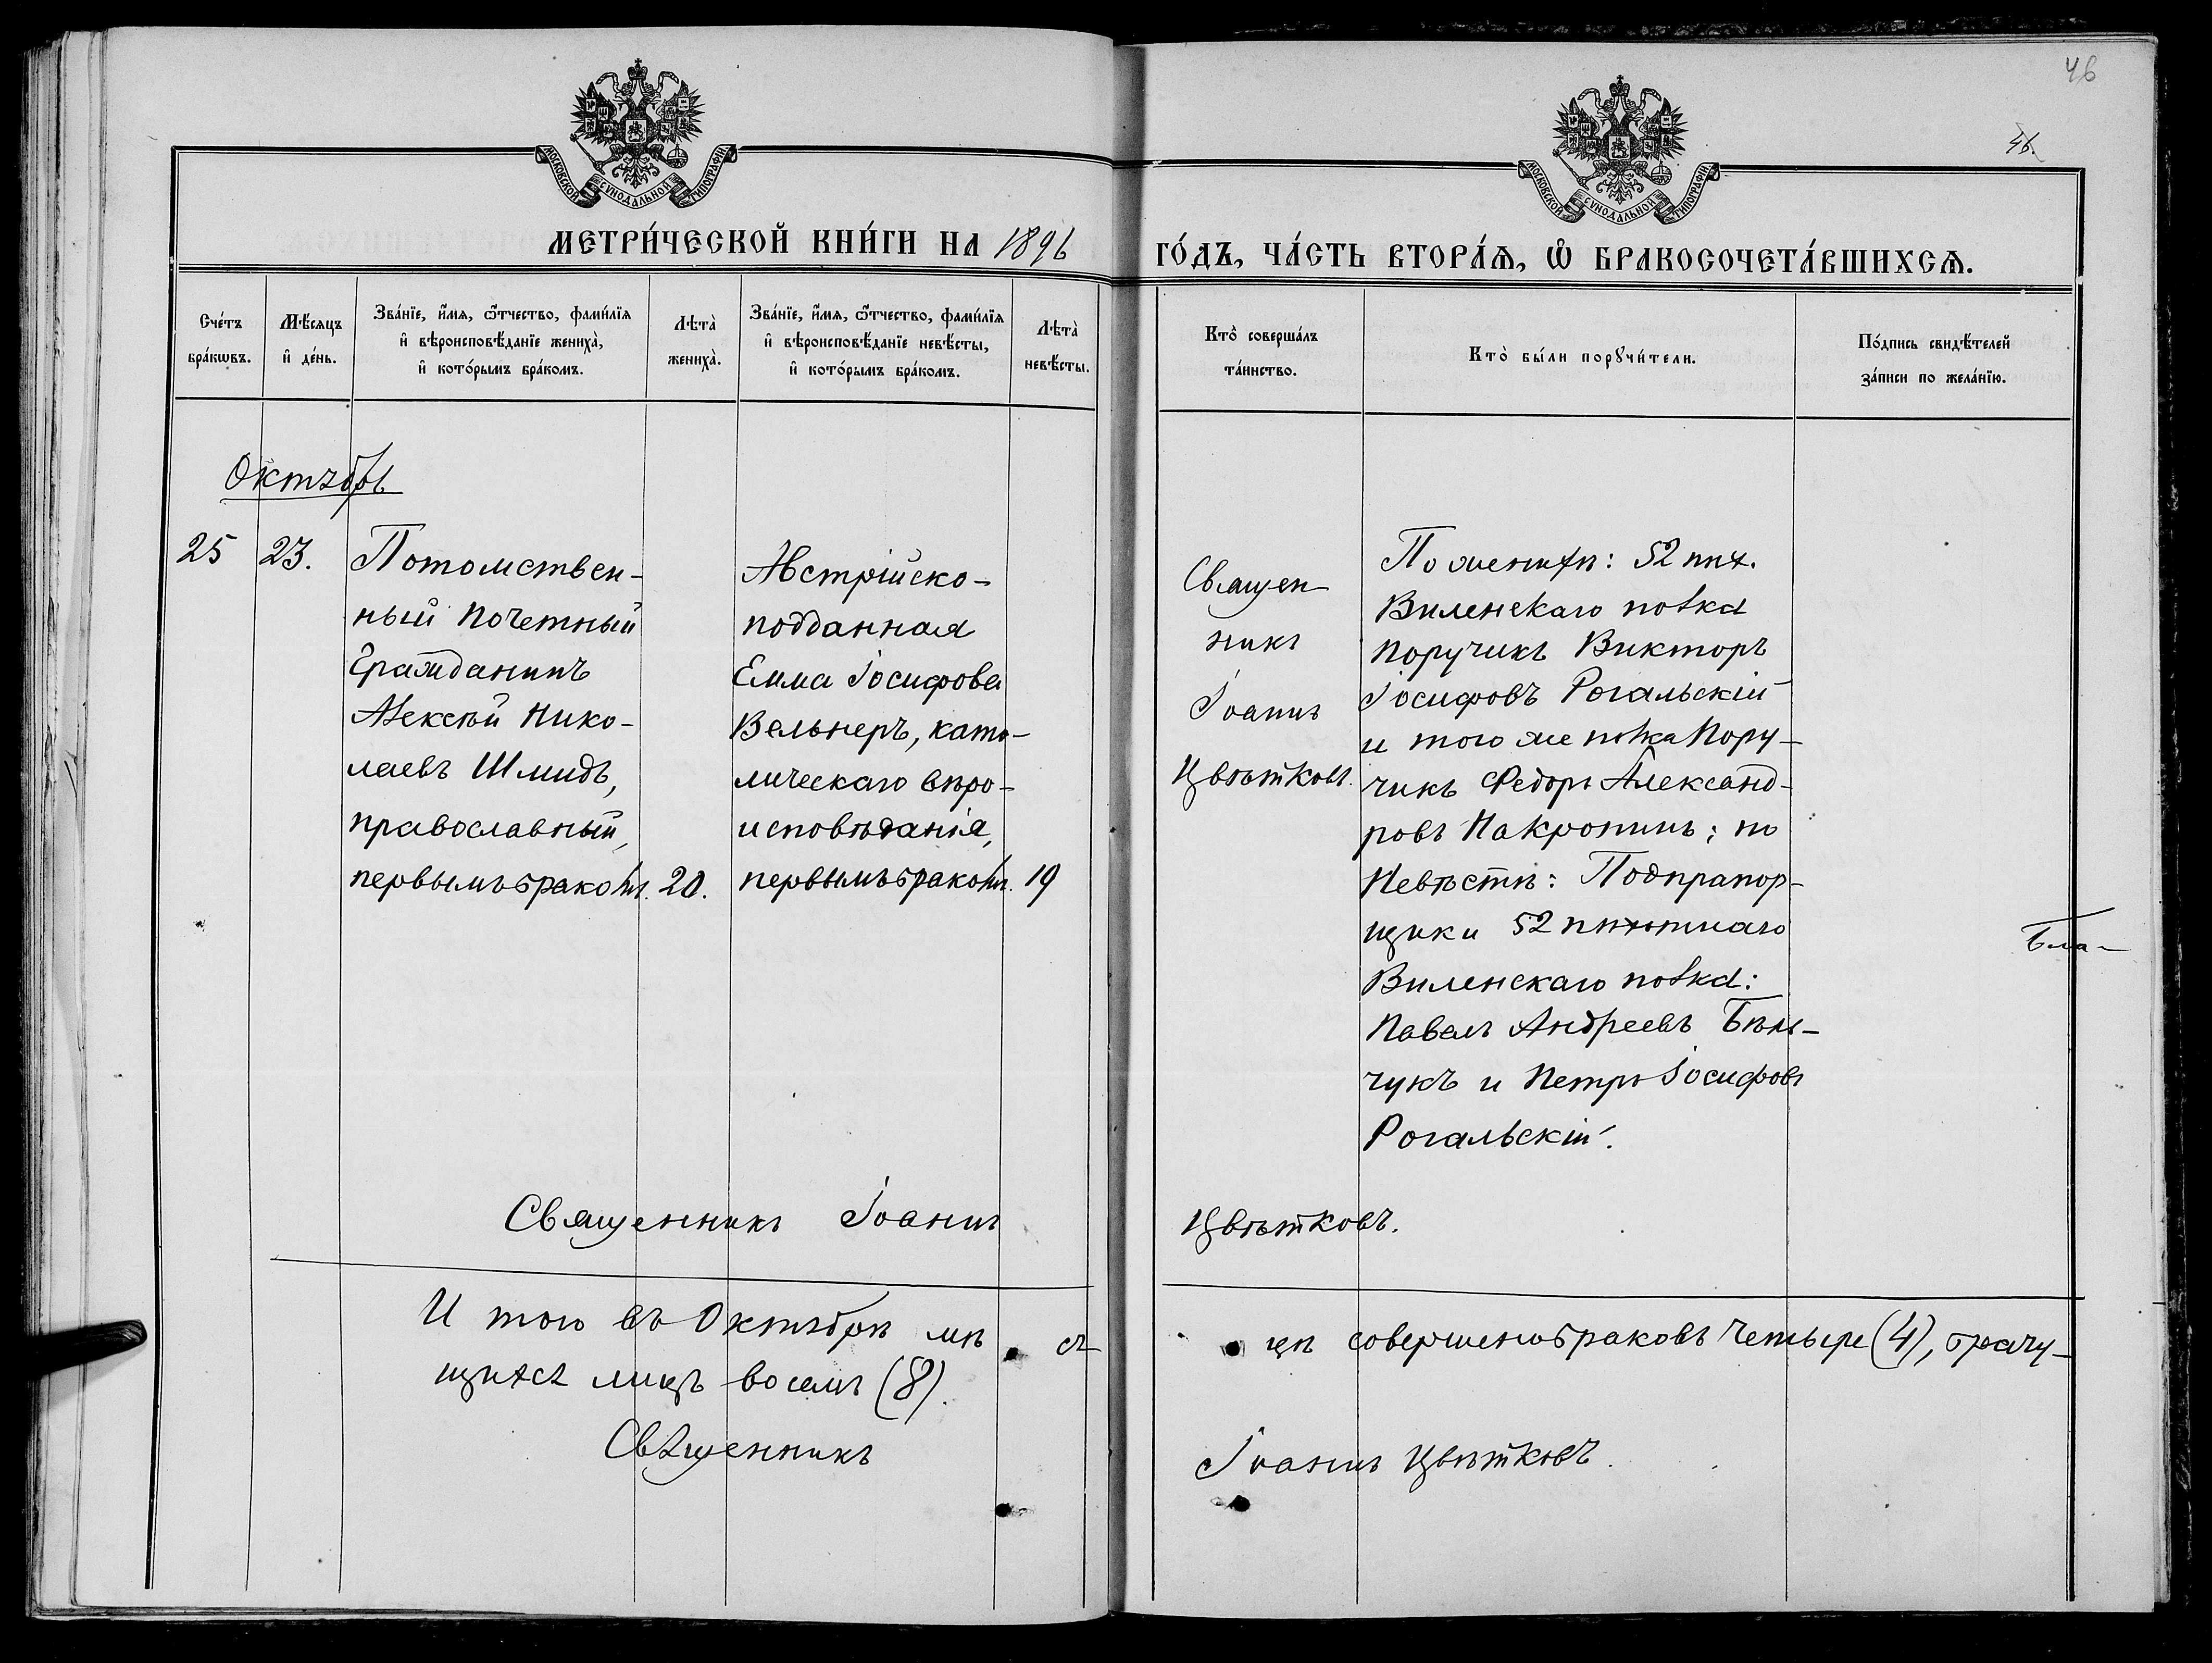 46
46.
МОСКОВСКОЙ СѴНОДАЛЬНОЙ ТИПОГРАФІИ
МОСКОВСКОЙ СѴНОДАЛЬНОЙ ТИПОГРАФІИ
МЕТРИ́ЧЕСКОЙ КНИ́ГИ НА 1896
ГО́ДЪ, ЧА́СТЬ ВТОРА́Ѧ, Ѽ БРАКОСОЧЕТА́ВШИХСѦ.
Сче́тъ
бра́кѡвъ.
Мѣ́сѧцъ
и҆ де́нь.
Зва́нїе, и҆́мѧ, ѻ҆́тчество, фами́лїѧ
и҆ вѣроисповѣ́данїе жениха̀,
и҆ кото́рымъ бра́комъ.
Лѣта̀
жениха̀.
Зва́нїе, и҆́мѧ, ѻ҆́тчество, фами́лїѧ
и҆ вѣроисповѣ́данїе невѣ́сты,
и҆ кото́рымъ бра́комъ.
Лѣта̀
невѣ́сты.
Кто̀ соверша́лъ
та́инство.
Кто̀ бы́ли порꙋчи́тели.
По́дпись свидѣ́телей
за́писи по жела́нїю.
Октябрь
25
23.
Потомствен-
ный Почетный
Гражданинъ
Алексѣй Нико-
лаевъ Шмидъ,
православный,
первымъ бракомъ.
20.
Австрійско-
подданная
Емма Іосифова
Вельнеръ, като-
лическаго вѣро-
исповѣданія,
первымъ бракомъ.
19
Священ
никъ
Іоаннъ
Цвѣтковъ.
По женихѣ: 52 пѣх.
Виленскаго полка
поручикъ Викторъ
Іосифовъ Рогальскій
и того же полка Пору-
чикъ Федоръ Александ-
ровъ Накропинъ; по
Невѣстѣ: Подпрапор-
щики 52 пѣхотнаго
Виленскаго полка:
Павелъ Андреевъ Бѣль-
чукъ и Петръ Іосифовъ
Рогальскій.
Бла-
Священникъ Іоаннъ
Цвѣтковъ.
И того въ Октябрѣ мѣ ся
цѣ совершено браковъ четыре (4), брачу-
щихся лицъ восемь (8).
Священникъ
Іоаннъ Цвѣтковъ.